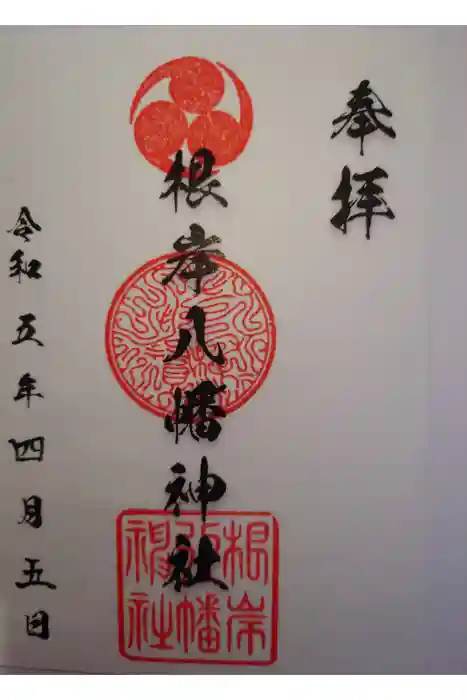 奉拝
根岸八幡神社
令和五年四月五日
根岸
八幡
神社